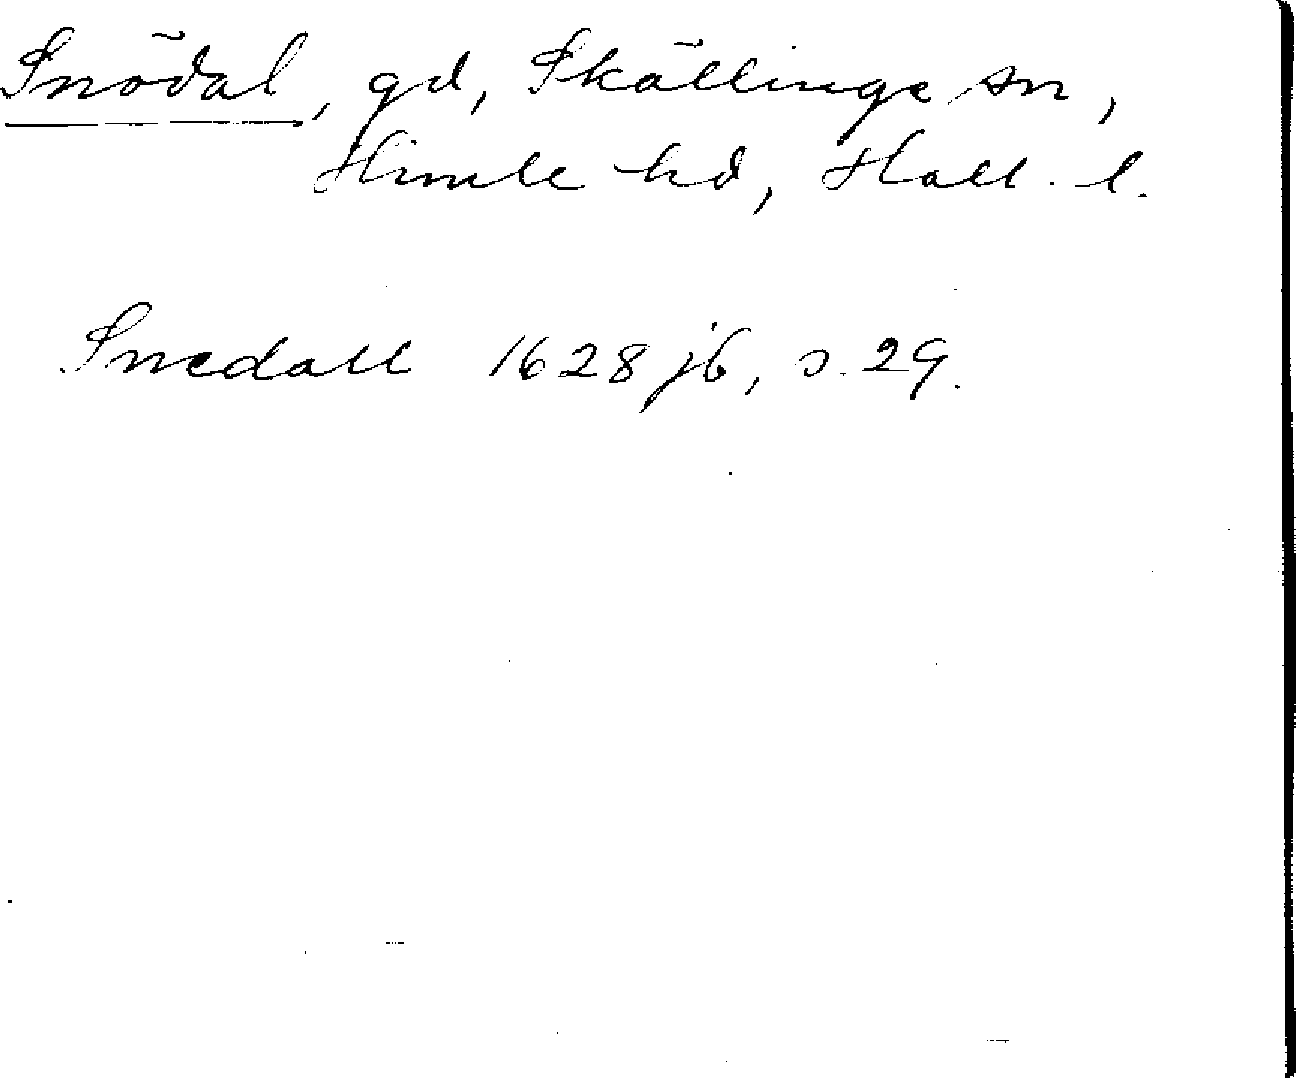 Snödal, gd, Skällinge sn,
Himle hd, Hall. l.
Snedall 1628 jb, s. 29.